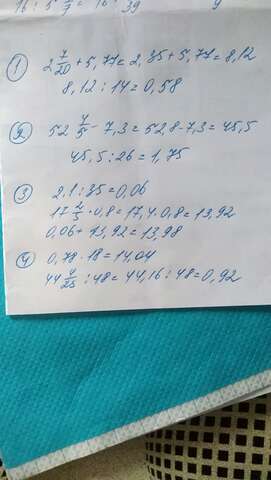 ① 2 7/20 + 5,77 = 2,35 + 5,77 = 8,12
8,12 : 14 = 0,58
② 52 4/5 - 7,3 = 52,8 - 7,3 = 45,5
45,5 : 26 = 1,75
③ 2.1 : 35 = 0,06
17 2/5 · 0,8 = 17,4 · 0,8 = 13,92
0,06 + 13,92 = 13,98
④ 0,78 · 18 = 14,04
44 4/25 : 48 = 44,16 : 48 = 0,92